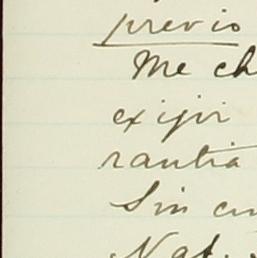 previo
Me ch
exijir
rantia
Sin em
Nat.